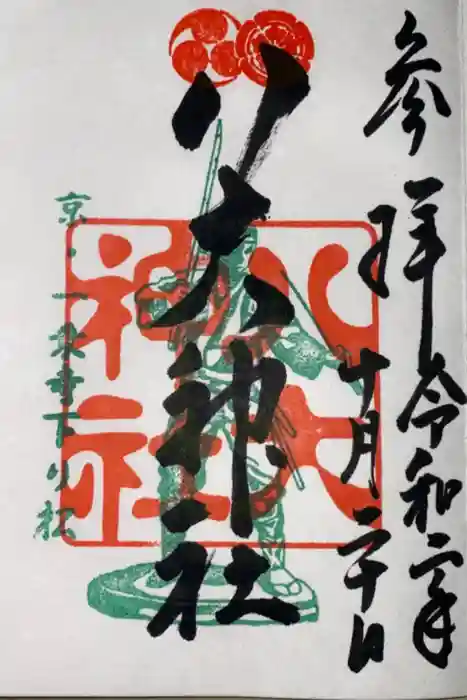 参拝 令和二年
十月二十日
八大神社
八大神社
京・一乗寺下り松